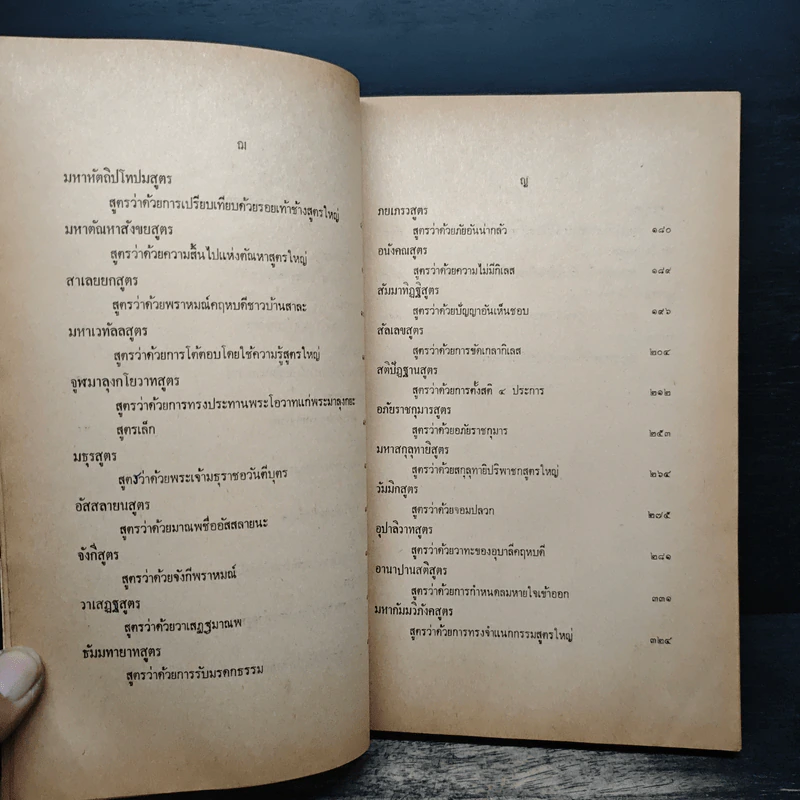 ฌ
มหาหัตถิปโทปมสูตร
สูตรว่าด้วยการเปรียบเทียบด้วยรอยเท้าช้างสูตรใหญ่
มหาตัณหาสังขยสูตร
สูตรว่าด้วยความสิ้นไปแห่งตัณหาสูตรใหญ่
สาเลยยกสูตร
สูตรว่าด้วยพราหมณ์คฤหบดีชาวบ้านสาละ
มหาเวทัลลสูตร
สูตรว่าด้วยการโต้ตอบโดยใช้ความรู้สูตรใหญ่
จูฬมาลุงกโยวาทสูตร
สูตรว่าด้วยการทรงประทานพระโอวาทแก่พระมาลุงกยะ
สูตรเล็ก
มธุรสูตร
สูตรว่าด้วยพระเจ้ามธุราชอวันตีบุตร
อัสสลายนสูตร
สูตรว่าด้วยมาณพชื่ออัสสลายนะ
จังกีสูตร
สูตรว่าด้วยจังกีพราหมณ์
วาเสฏฐสูตร
สูตรว่าด้วยวาเสฏฐมาณพ
ธัมมทายาทสูตร
สูตรว่าด้วยการรับมรดกธรรม
ญ
ภยเภรวสูตร
สูตรว่าด้วยภัยอันน่ากลัว ๑๘๐
อนังคณสูตร
สูตรว่าด้วยความไม่มีกิเลส ๑๘๙
สัมมาทิฏฐิสูตร
สูตรว่าด้วยปัญญาอันเห็นชอบ ๑๙๖
สัลเลขสูตร
สูตรว่าด้วยการขัดเกลากิเลส ๒๐๔
สติปัฏฐานสูตร
สูตรว่าด้วยการตั้งสติ ๔ ประการ ๒๑๒
อภัยราชกุมารสูตร
สูตรว่าด้วยอภัยราชกุมาร ๒๕๓
มหาสกุลุทายิสูตร
สูตรว่าด้วยสกุลุทายิปริพาชกสูตรใหญ่ ๒๖๔
วัมมิกสูตร
สูตรว่าด้วยจอมปลวก ๒๗๕
อุปาลิวาทสูตร
สูตรว่าด้วยวาทะของอุบาลีคฤหบดี ๒๘๑
อานาปานสติสูตร
สูตรว่าด้วยการกำหนดลมหายใจเข้าออก ๓๓๑
มหากัมมวิภังคสูตร
สูตรว่าด้วยการทรงจำแนกกรรมสูตรใหญ่ ๓๒๔